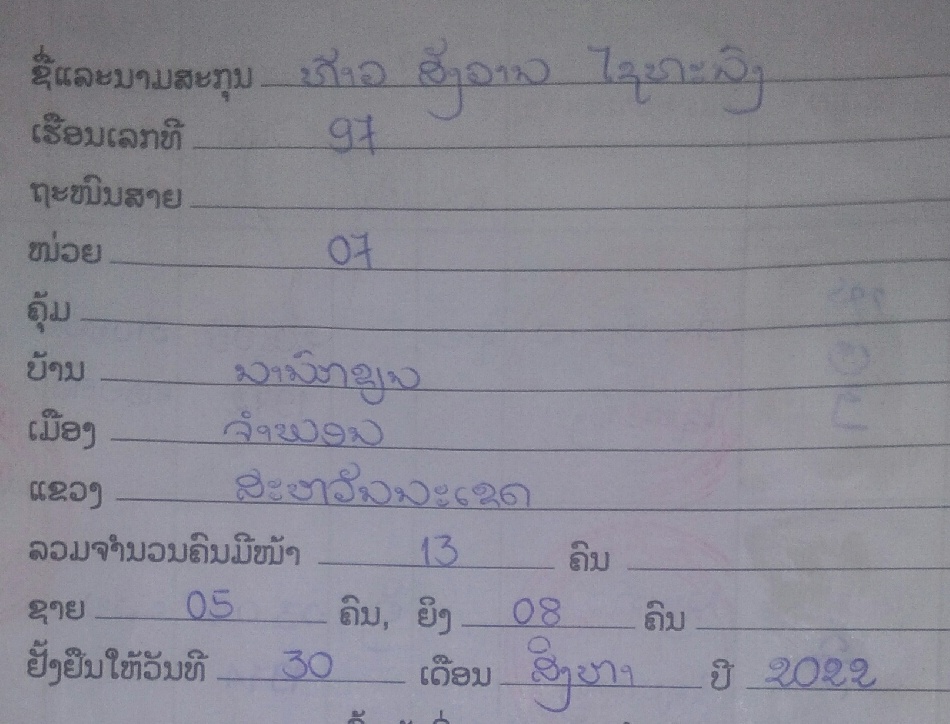 ຊື່ແລະນາມສະກຸນ ທ້າວ ສັງວານ ໄຊຫາະລິງ
ເຮືອນເລກທີ 97
ຖະໜົນສາຍ
ໜ່ວຍ 07
ຄຸ້ມ
ບ້ານ
ເມືອງ ຈໍາພອນ
ແຂວງ ສະຫວັນນະເຂດ
ລວມຈໍານວນຄົນມີໜ້າ 13 ຄົນ
ຊາຍ 05 ຄົນ, ຍິງ 08 ຄົນ
ຢັ້ງຢືນໃຫ້ວັນທີ 30 ເດືອນ ສິງຫາ ປີ 2022